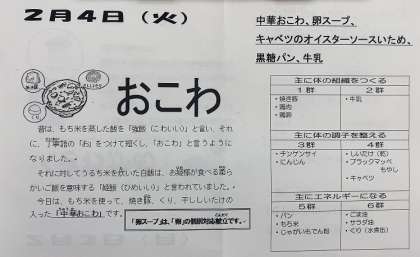 2月4日（火）
おこわ
昔は、もち米を蒸した飯を「強飯（こわいい）」と言い、それ
に、丁寧語の「お」をつけて短くし、「おこわ」と言うように
なりました。
それに対してうるち米を炊いた白飯は、お姫様が食べる柔ら
かいご飯を意味する「姫飯（ひめいい）」と言われていました。
今日は、もち米を使って、焼き豚、くり、干ししいたけの
入った「中華おこわ」です。
「卵スープ」は、「卵」の個別対応献立です。
中華おこわ、卵スープ、
キャベツのオイスターソースいため、
黒糖パン、牛乳
主に体の組織をつくる
1群 2群
・焼き豚 ・牛乳
・鶏肉
・鶏卵
主に体の調子を整える
3群 4群
・チンゲンサイ ・しいたけ（乾）
・にんじん ・ブラックマッペ
もやし
・キャベツ
主にエネルギーになる
5群 6群
・パン ・ごま油
・もち米 ・サラダ油
・じゃがいもでん粉 ・くり（水煮缶）